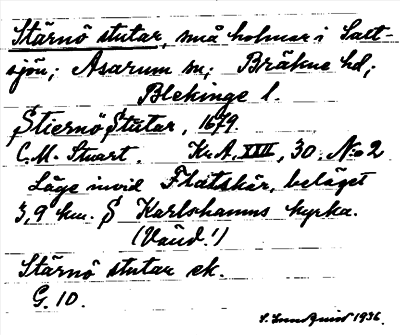 Stärnö stutar, små holmar i Salt-
sjön; Asarum sn; Bräkne hd;
Blekinge l.
Stiernö Stutar, 1679
C.M. Stuart. Kr.A. XXII, 30. No 2
Läge invid Flatskär, beläget
3,9 km. S Karlshamns kyrka.
(Vänd!)
Stärnö stutar ek.
G. 10.
S. Lundquist 1936.